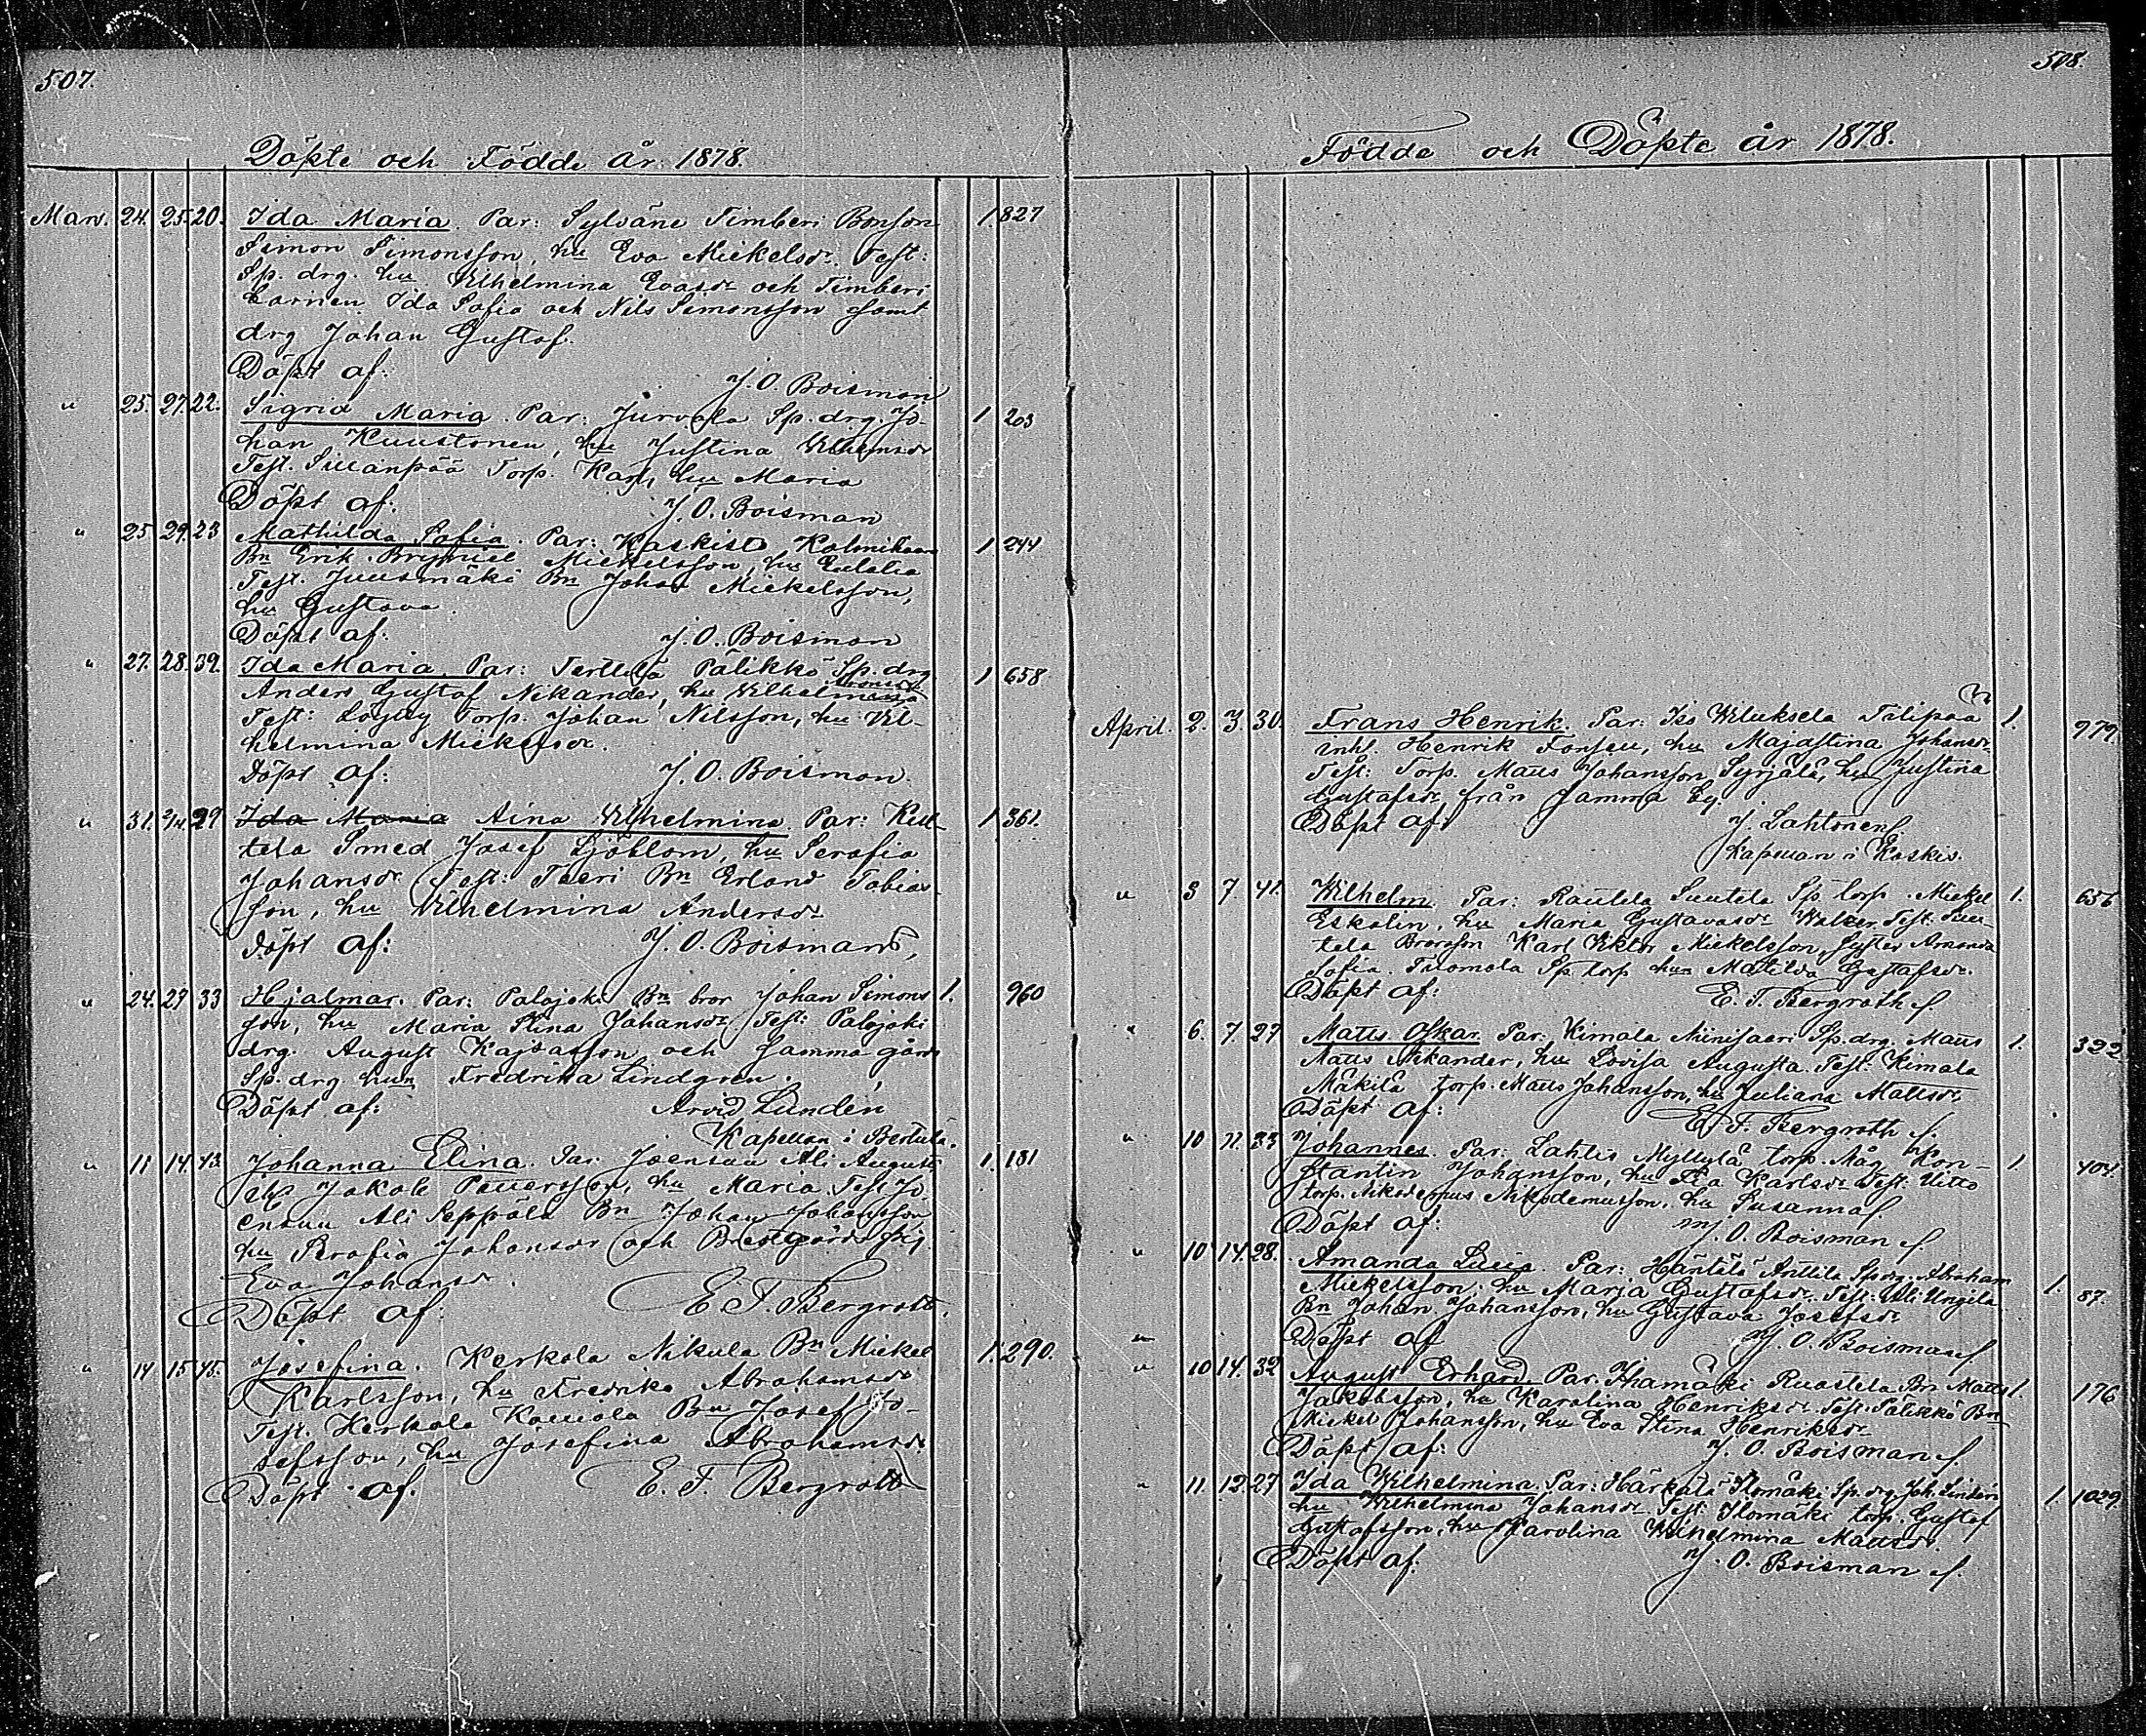 507.
Döpte och Födde år 1878.
Mars. 24. 25. 20. Ida Maria. Par: Sylväne Timberi Bonson 1. 827
Simon Simonsson, hu Eva Mickelsdr. Test:
Sp. drg. hu Wilhelmina Evasdr och Timberi
barnen Ida Sofia och Nils Simonsson samt
drg Johan Gustaf.
Döpt af: J. O. Boisman
" 25. 27. 22. Sigrid Maria. Par: Jurvala Sp. drg. Jo- 1 203
han Kuustonen, hu Justina Wilhelmsdr
Test. Sillanpää Torp. Karl, hu Maria
Döpt af: J. O. Boisman
" 25 29. 23 Mathilda Sofia. Par: Koskis Kolmihaara 1 244
Bn Erik Mickelsson, hu Eulalia
Test. Juusmäki Bn Johan Mickelsson,
hu Gustava.
Döpt af. J. O. Boisman
" 27. 28. 39. Ida Maria. Par: Terttilä Palikkö Sp. drg 1 658
Anders Gustaf Nikander, hu Wilhelmina
Test: Torp. Johan Nilsson, hu Vil-
helmina Mickelsdr.
Döpt af: J. O. Boisman.
" 31. 2/4. 29 Ida Maria Aina Wilhelmina. Par: Kut- 1 361.
tela Smed Josef Sjöblom, hu Serafia
Johansdr. Test: Teeri Bn Erland Tobias-
son, hu Wilhelmina Andersdr
Döpt af: J. O. Boisman,
" 24. 29 33 Hjalmar. Par: Palojoki Bn bror Johan Simons 1. 960
son, hu Maria Stina Johansdr. Test: Palojoki
drg. August Kajsasson och Jamma gårds
Sp. drg hun Fredrika Lindgren.
Döpt af: Arvid Lunden
Kapellan i Bertula.
" 11 14. 43. Johanna Elina. Par: Joensuu Ali Augusti 1. 181
Jakob Pettersson, hu Maria. Test Jo-
ensuu Ali Seppälä Bn Johan Johansson
hu Serafia Johansdr och Prestgårds pig.
Eva Johansdr.
Döpt af: E. T. Bergroth.
" 14 15 45. Josefina. Kerkola Nikula Bn Mickel 1. 290.
Karlsson, hu Fredrika Abrahamsdr
Test. Kerkola Kouvola Bn Josef Jo-
sefsson, hu Josefina Abrahamsdr
Döpt af. E. T. Bergroth
508.
Födde och Döpte år 1878.
April. 2. 3. 30. Frans Henrik. Par: Iso Wiluksela Filipaa 1. 979.
inh. Henrik Fonsen, hu Majastina Johansdr
Test: Torp. Matts Johansson Syrjälä, hu Justina
Gustafsdr från Jamma Eg.
Döpt af: J. Lahtonen
Kapellan i Koskis.
" 3 7. 41. Wilhelm. Par: Rautela Suutela Sp. torp. Mickel 1. 656
Eskolin, hu Maria Gustavasdr Walzer. Test. Suu-
tela Brorson Karl Viktor Mickelsson, syster Amanda
Sofia. Tuomola Sp torp hun Matilda Gustafsdr.
Döpt af: E. T. Bergroth
" 6. 7. 27 Matts Oskar. Par: Kimala Miinisaari Sp. drg. Matts 1. 322
Matts Nikander, hu Lovisa Augusta. Test: Kimala
Mäkilä torp. Matts Johansson, hu Juliana Mattsdr,
Döpt af: E. T. Bergroth
" 10 11. 33 Johannes. Par: Lahtis Myllylä torp. Måg Kon- 1. 404.
stantin Johansson, hu Eva Karlsdr. Test: Uitto
torp. Nikodemus Nikodemusson, hu Susanna.
Döpt af: J. O. Boisman
" 10 14. 28. Amanda Lucia. Par: Häntälä Anttila Sp. drg. Abraham 1. 87.
Mickelsson, hu Maria Gustafsdr. Test: Uli Ungila
Bn Johan Johansson, hu Gustava Josefsdr
" Döpt af J. O. Boisman
" 10 14. 32 August Erhard. Par. Ihamäki Ruostela Bn Matts 1. 176
Jakobsson, hu Karolina Henriksdr. Test. Palikkö Bn
Mickel Johansson, hu Eva Stina Henriksdr
Döpt af: J. O. Boisman
" 11. 12. 27 Ida Wilhelmina. Par: Härkälä Ilomäki Sp. drg. Joh. Linden 1. 1029.
hu Wilhelmina Johansdr. Test: Ilomäki torp. Gustaf
Gustafsson, hu Karolina Wilhelmina Mattsdr.
Döpt af. J. O. Boisman